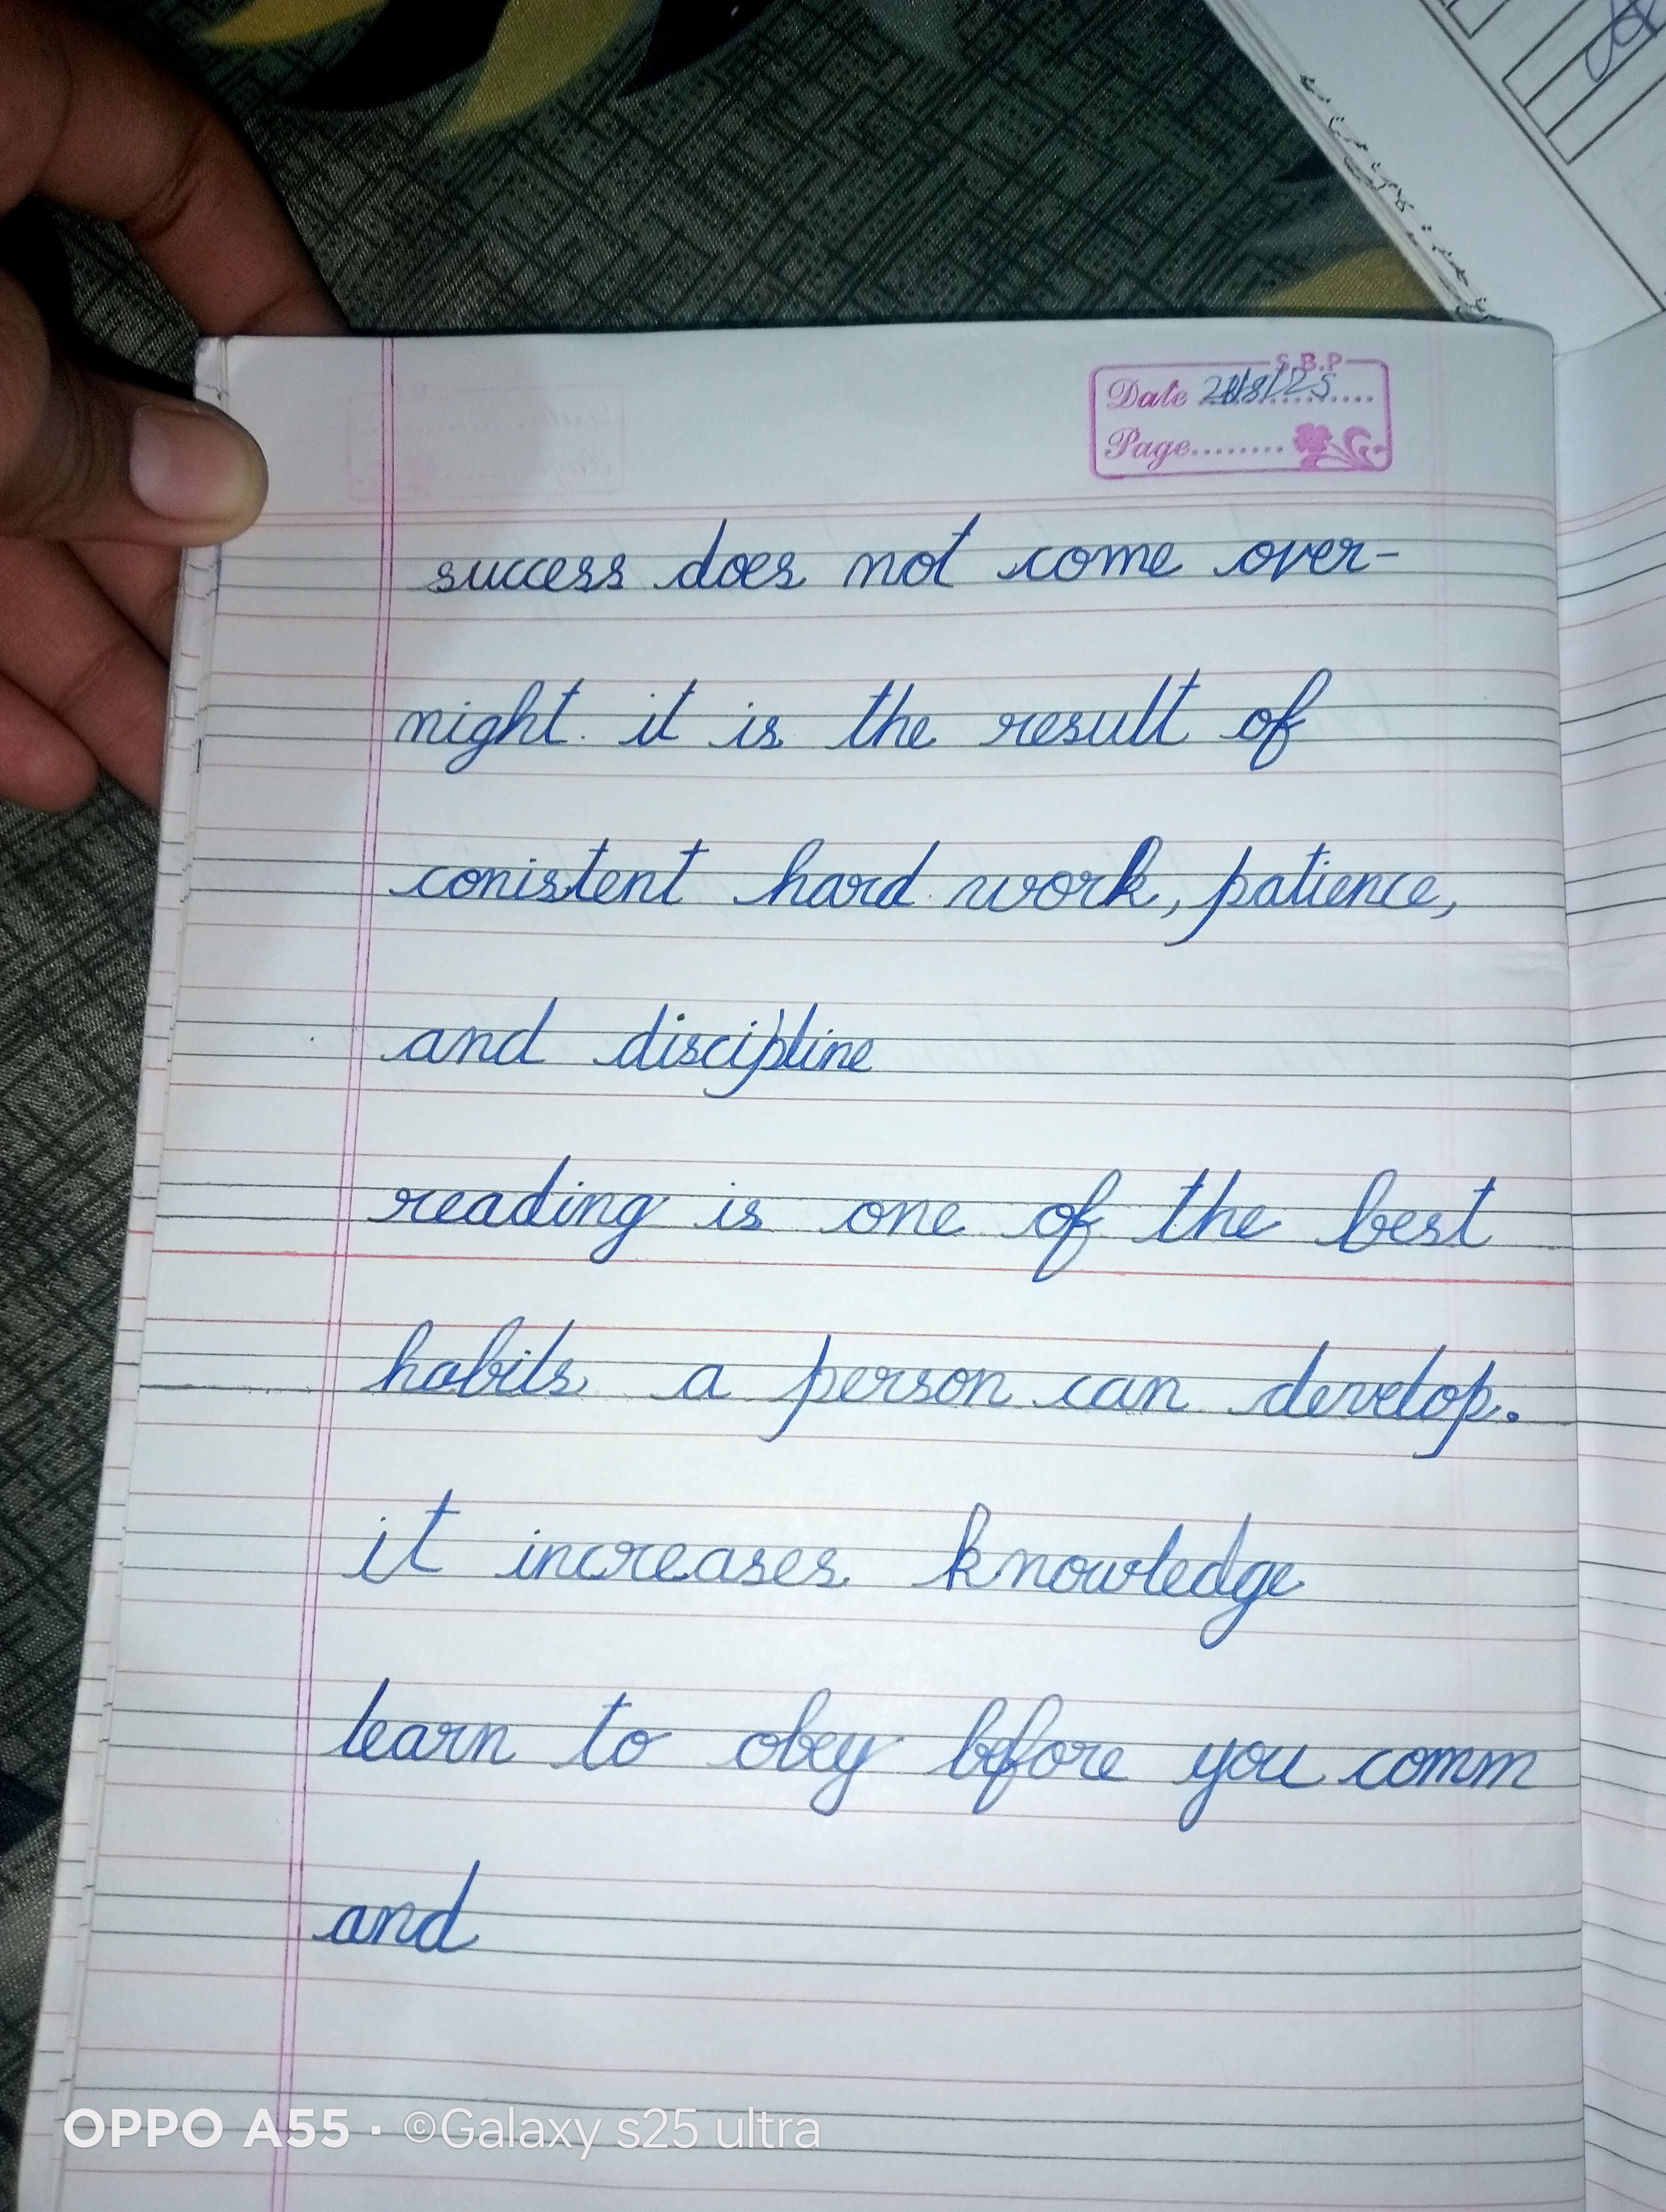 S.B.P
Date 21/8/25
Page
success does not come over-
night. it is the result of
conistent hard work, patience,
and discipline
reading is one of the best
habits a person can develop.
it increases knowledge
learn to obey before you comm
and
OPPO A55 · ©Galaxy s25 ultra